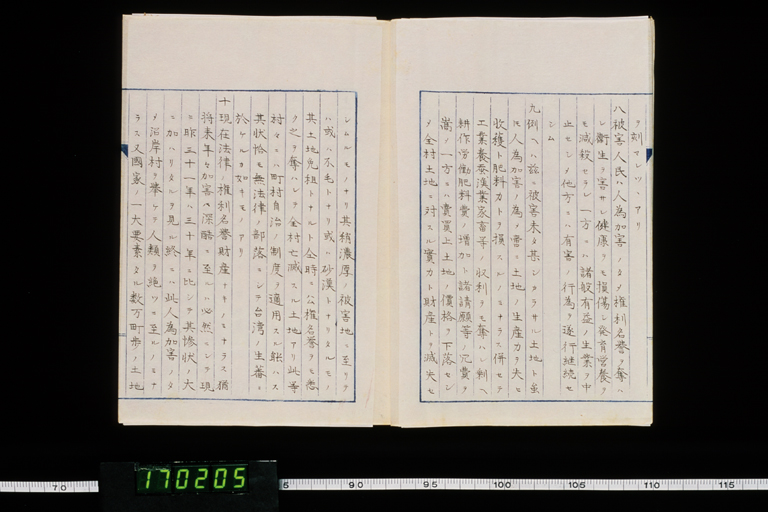 ヲ刻マレツヽアリ
八被害人民ハ人為加害ノタメ権利名誉ヲ奪ハ
レ衛生ヲ害サレ健康ヲモ損傷シ発育営養ヲ
モ減殺セラレ一方ニハ諸般有益ノ生業ヲ中
止セシメ他方ニハ有害ノ行為ヲ遂行継続セ
シム
九例ヘハ茲ニ被害未タ甚シカラサル土地ト雖
モ人為加害ノ為メ常ニ土地ノ生産力ヲ失ヒ
収穫ト肥料力トヲ損スルノミナラス併セテ
工業養蚕漁業家畜等ノ収利ヲモ奪ハレ剰ヘ
耕作労働肥料費ノ増加ト諸請願等ノ冗費ヲ
嵩ノ一方ニハ売買上土地ノ価格ヲ下落セシ
メ全村土地ニ対スル実力ト財産トヲ減失セ
シムルモノナリ其稍濃厚ノ被害地ニ至リテ
ハ或ハ不毛トナリ或ハ砂漠トナリタルモノ
其土地免租トナルト全時ニ公権名誉ヲモ悉
ク之ヲ奪ハレテ全村亡滅スル土地アリ此等
村々ニハ町村自治ノ制度ヲ適用スル能ハス
其状恰モ無法律ノ部落ニシテ台湾ノ生蕃ニ
於ケルカ如キモノアリ
十現在法律ノ権利名誉財産ナキノミナラス猶
将来年々加害ノ深酷ニ至ルハ必然ニシテ現
ニ昨三十一年ハ三十年ニ比シテ其惨状ノ大
ニ加ハリタルヲ見ル終ニハ此人為加害ノタ
メ沿岸村ヲ挙ケテ人類ヲ絶ツニ至ルノミナ
ラス又国家ノ一大要素タル数万町歩ノ土地
170205
70
5
90
95
100
105
110
115